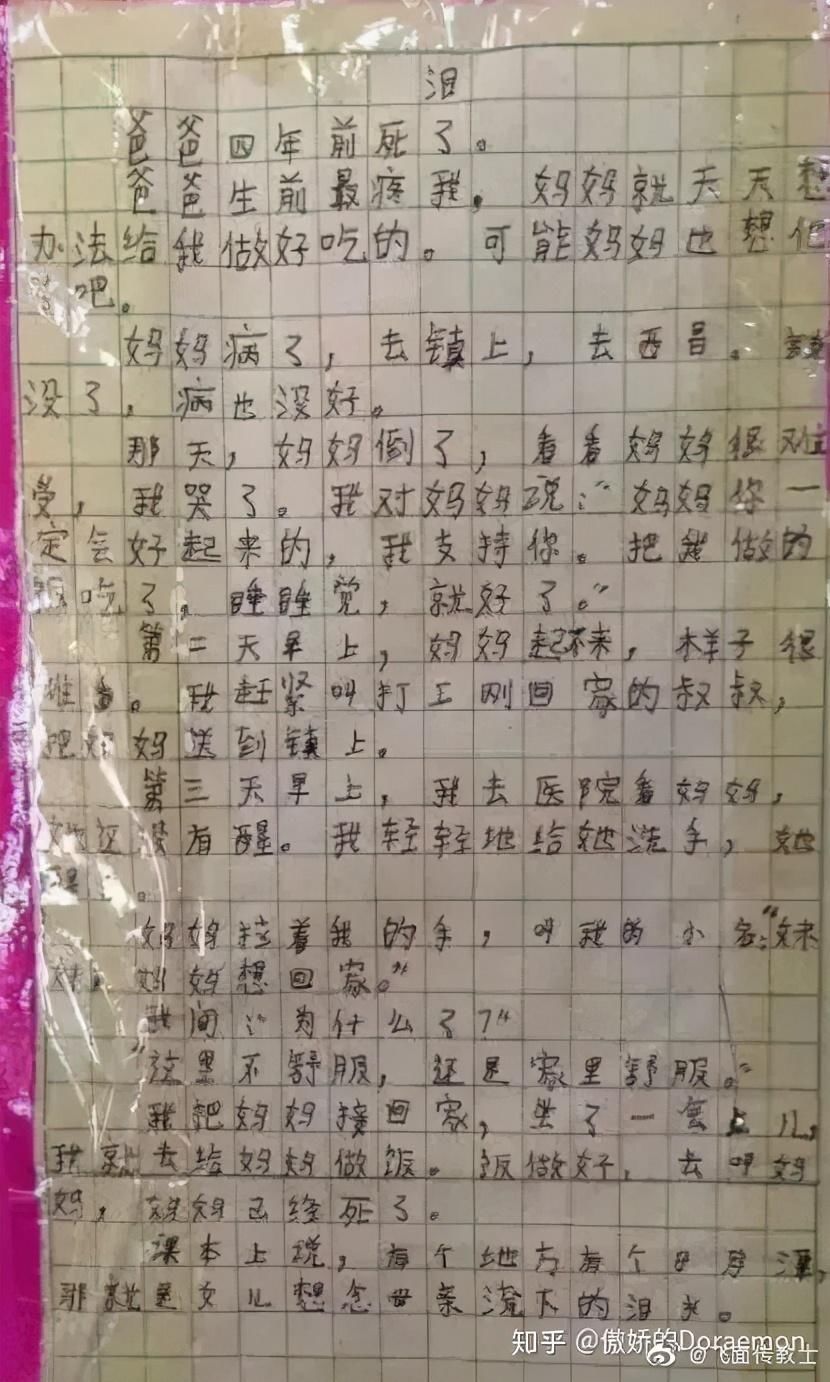 泪
爸爸四年前死了。
爸爸生前最疼我，妈妈就天天想
办法给我做好吃的。可能妈妈也想他
吧。
妈妈病了，去镇上，去西昌。钱
没了，病也没好。
那天，妈妈倒了，看看妈妈很难
受，我哭了。我对妈妈说：“妈妈你一
定会好起来的，我支持你。把我做的
饭吃了，睡睡觉，就好了。”
第二天早上，妈妈起不来，样子很
难看。我赶紧叫打工刚回家的叔叔，
把妈妈送到镇上。
第三天早上，我去医院看妈妈，
她还没有醒。我轻轻地给她洗手，她
。
妈妈拉着我的手，叫我的小名：“妹
妹，妈妈想回家。”
我问：“为什么了？”
“这里不舒服，还是家里舒服。”
我把妈妈接回家，坐了一会儿，
我就去给妈妈做饭。饭做好，去叫妈
妈，妈妈已经死了。
课本上说，有个地方有个日月潭，
那就是女儿想念母亲流下的泪水。
知乎 @傲娇的Doraemon
@飞面传教士